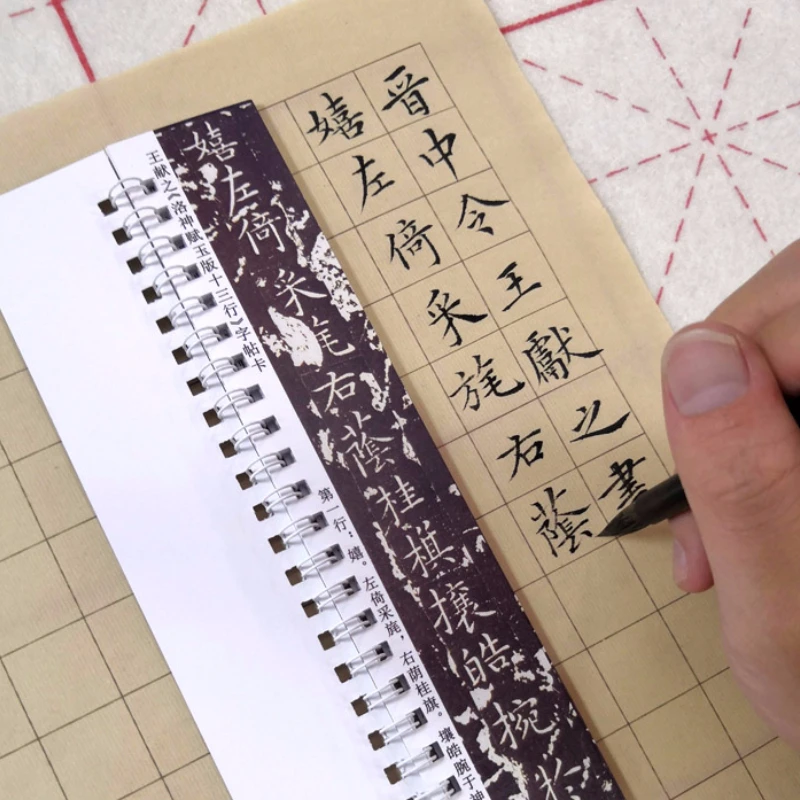 晋中令王獻之書
嬉左倚采旄右蔭
嬉左倚采旄右蔭桂旗攘皓捥於
王献之《洛神赋玉版十三行》字帖卡
第一行：嬉。左倚采旄，右荫桂旗。壤皓腕于神